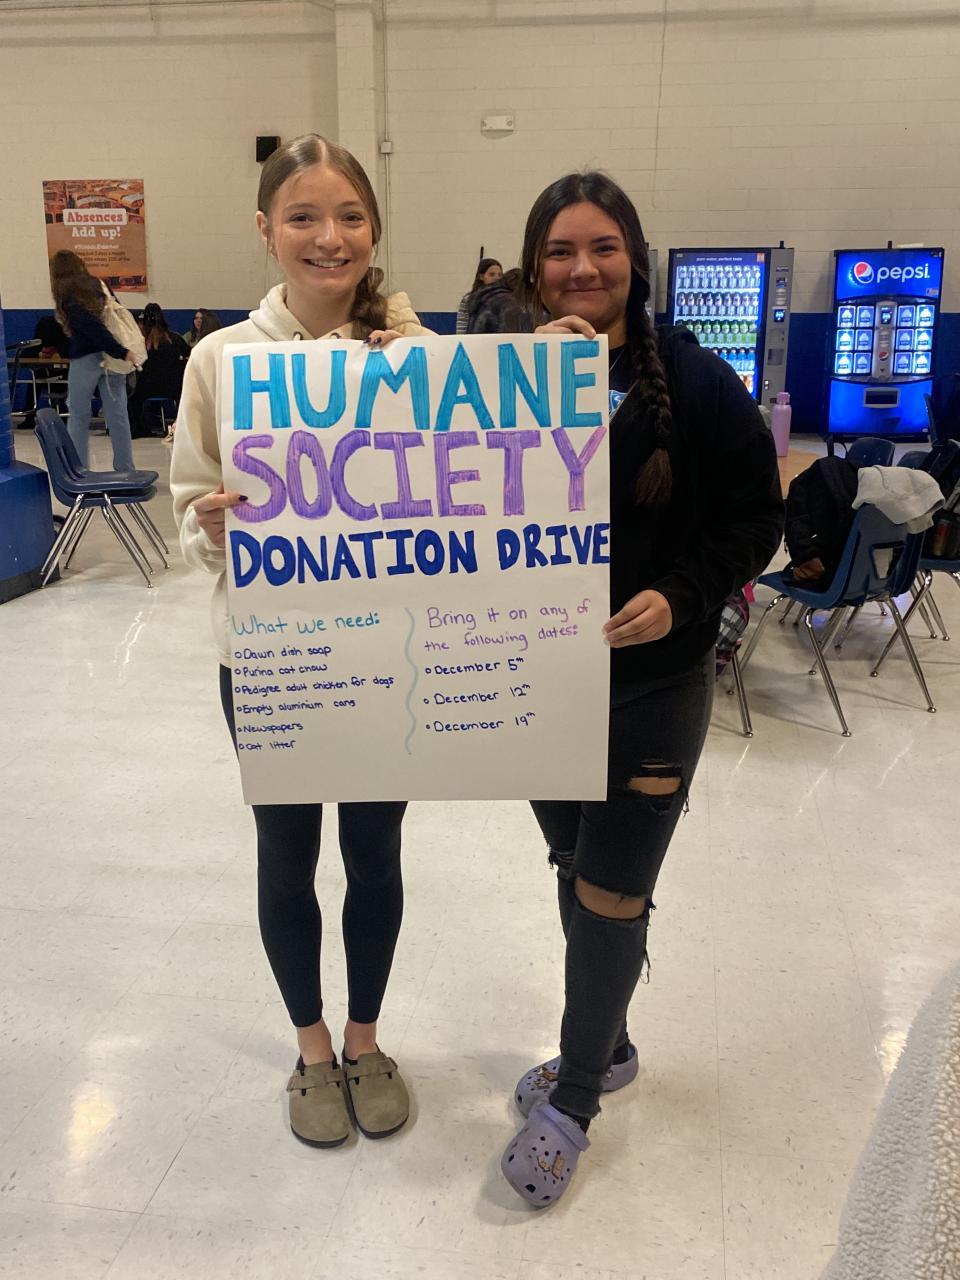 Absences
Add up!
pure water, perfect taste
pepsi
HUMANE
SOCIETY
DONATION DRIVE
What we need:
Dawn dish soap
Purina cat chow
Pedigree adult chicken for dogs
Empty aluminium cans
Newspapers
Cat litter
Bring it on any of
the following dates:
December 5th
December 12th
December 19th